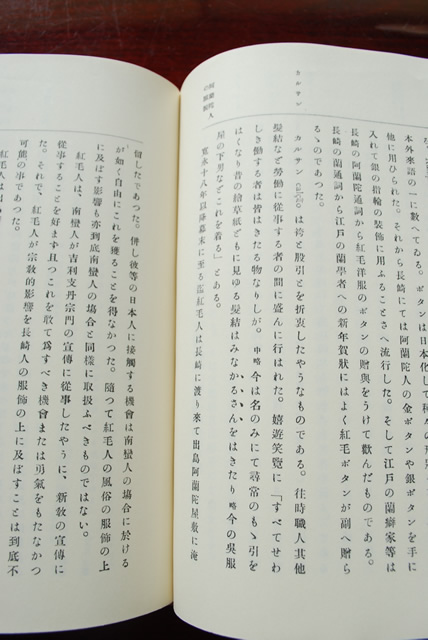 本外來語の一に數へてゐる。ボタンは日本化して種々
他に用ひられた。それから長崎にては阿蘭陀人の金ボタンや銀ボタンを手に
入れて銀の指輪の裝飾に用ふることさへ流行した。そして江戸の蘭癖家等は
長崎の阿蘭陀通詞から紅毛洋服のボタンの贈與をうけて歡んだものである。
長崎の蘭通詞から江戸の蘭學者への新年賀狀にはよく紅毛ボタンが副へ贈ら
るゝのであつた。
カルサン
カルサン calção は袴と股引とを折衷したやうなものである。往時職人其他
髮結など勞働に從事する者の間に盛んに行はれた。嬉遊笑覽に「すべてせわ
しき働する者は皆はきたる物なりしが。中略 今は名のみにて尋常のもゝ引を
はくなり昔の繪草紙どもに見ゆる髮結はみなかるさんをはきたり 略 今の吳服
屋の下男などこれを着る」とある。
阿蘭陀人
の服裝
寬永十八年以降幕末に至る迄紅毛人は長崎に渡り來て出島阿蘭陀屋敷に淹
留したであつた。併し彼等の日本人に接觸する機會は南蠻人の場合に於ける
が如く自由にこれを獲ることを得なかつた。隨つて紅毛人の風俗の服飾の上
に及ぼす影響も亦到底南蠻人の場合と同樣に取扱ふべきものではない。
紅毛人は、南蠻人が吉利支丹宗門の宣傳に從事したやうに、新敎の宣傳に
從事することを好まず且つこれを敢て爲すべき機會または勇氣をもたなかつ
た。それで、紅毛人が宗敎的影響を長崎人の服飾の上に及ぼすことは到底不
可能の事であつた。
紅毛人は